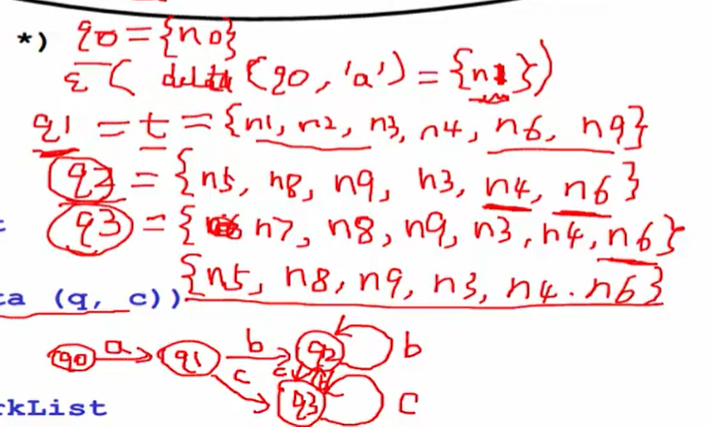 *) q0 = {n0}
ε ( delta (q0, 'a') = {n1})
q1 = t = {n1, n2, n3, n4, n6, n9}
q2 = {n5, n8, n9, n3, n4, n6}
q3 = { n7, n8, n9, n3, n4, n6}
ta (q, c)) {n5, n8, n9, n3, n4. n6}
q0 a q1 b q2 b
c c q3 c
rkList